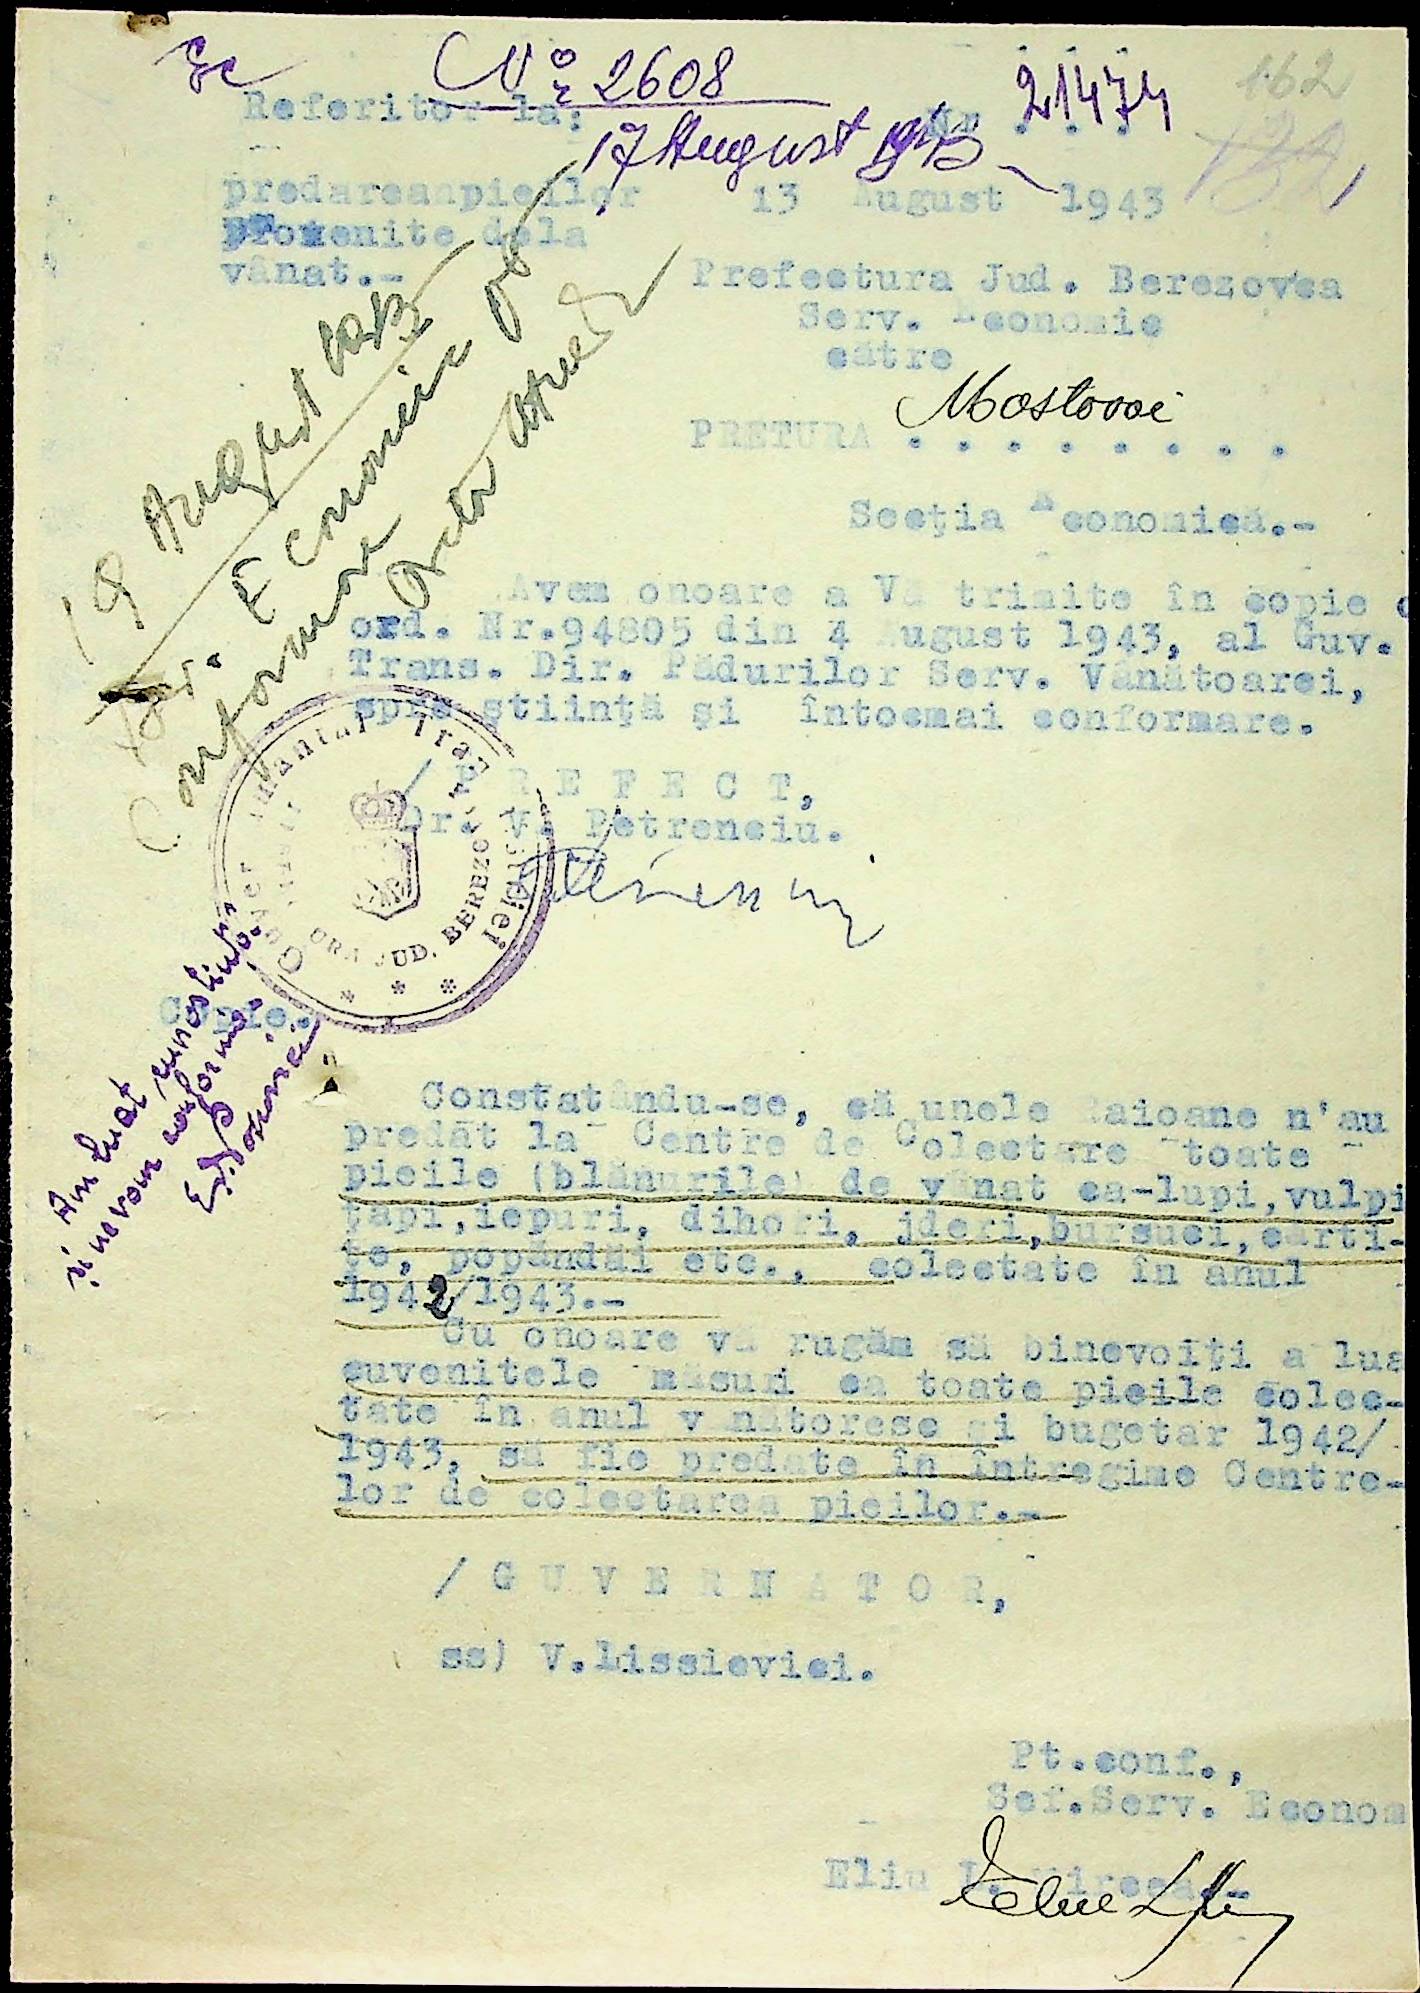 Ec
Nº 2608
17 August 1943
Referitor la:
Nr. 21474
162
132
predarea pieilor
provenite dela
vânat.-
13 August 1943
Prefectura Jud. Berezovca
Serv. Economic
către
PRETURA Mostovoi
Secţia Economică.-
19 August 1943
Economic
Conformare
Avem onoare a Vă trimite în copie
ord. Nr.94805 din 4 August 1943, al Guv.
Trans. Dir. Pădurilor Serv. Vânătoarei,
spre ştiinţă şi întocmai conformare.
/ P R E F E C T,
Dr. V. Petrenciu.
JUD. BEREZO
* * *
Am luat cunoştinţă
şi ne vom conforma.
Copie.
Constatându-se, că unele Raioane n'au
predat la Centre de Colectare toate
pieile (blănurile) de vânat ca-lupi, vulpi
ţapi, iepuri, dihori, jderi, bursuci, cârti-
ţe, popândăi etc., colectate în anul
1942/1943.-
Cu onoare vă rugăm să binevoiţi a lua
cuvenitele măsuri ca toate pieile colec-
tate în anul vânătoresc şi bugetar 1942/
1943, să fie predate în întregime Centre-
lor de colectarea pieilor.-
/ G U V E R N A T O R,
ss) V.Lissievici.
Pt.conf.,
Şef.Serv. Econom
Eliu L. Mircea.-